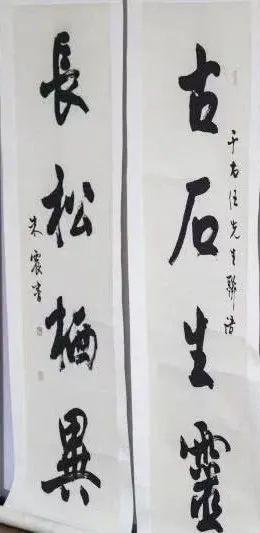 于右任先生聯語
古石生靈
長松栖異
朱震書